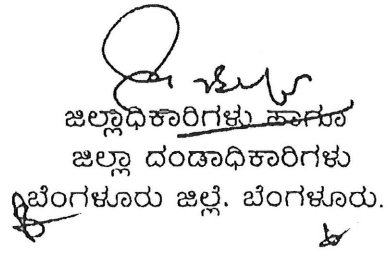 ಜಿಲ್ಲಾಧಿಕಾರಿಗಳು ಹಾಗೂ
ಜಿಲ್ಲಾ ದಂಡಾಧಿಕಾರಿಗಳು
ಬೆಂಗಳೂರು ಜಿಲ್ಲೆ. ಬೆಂಗಳೂರು.